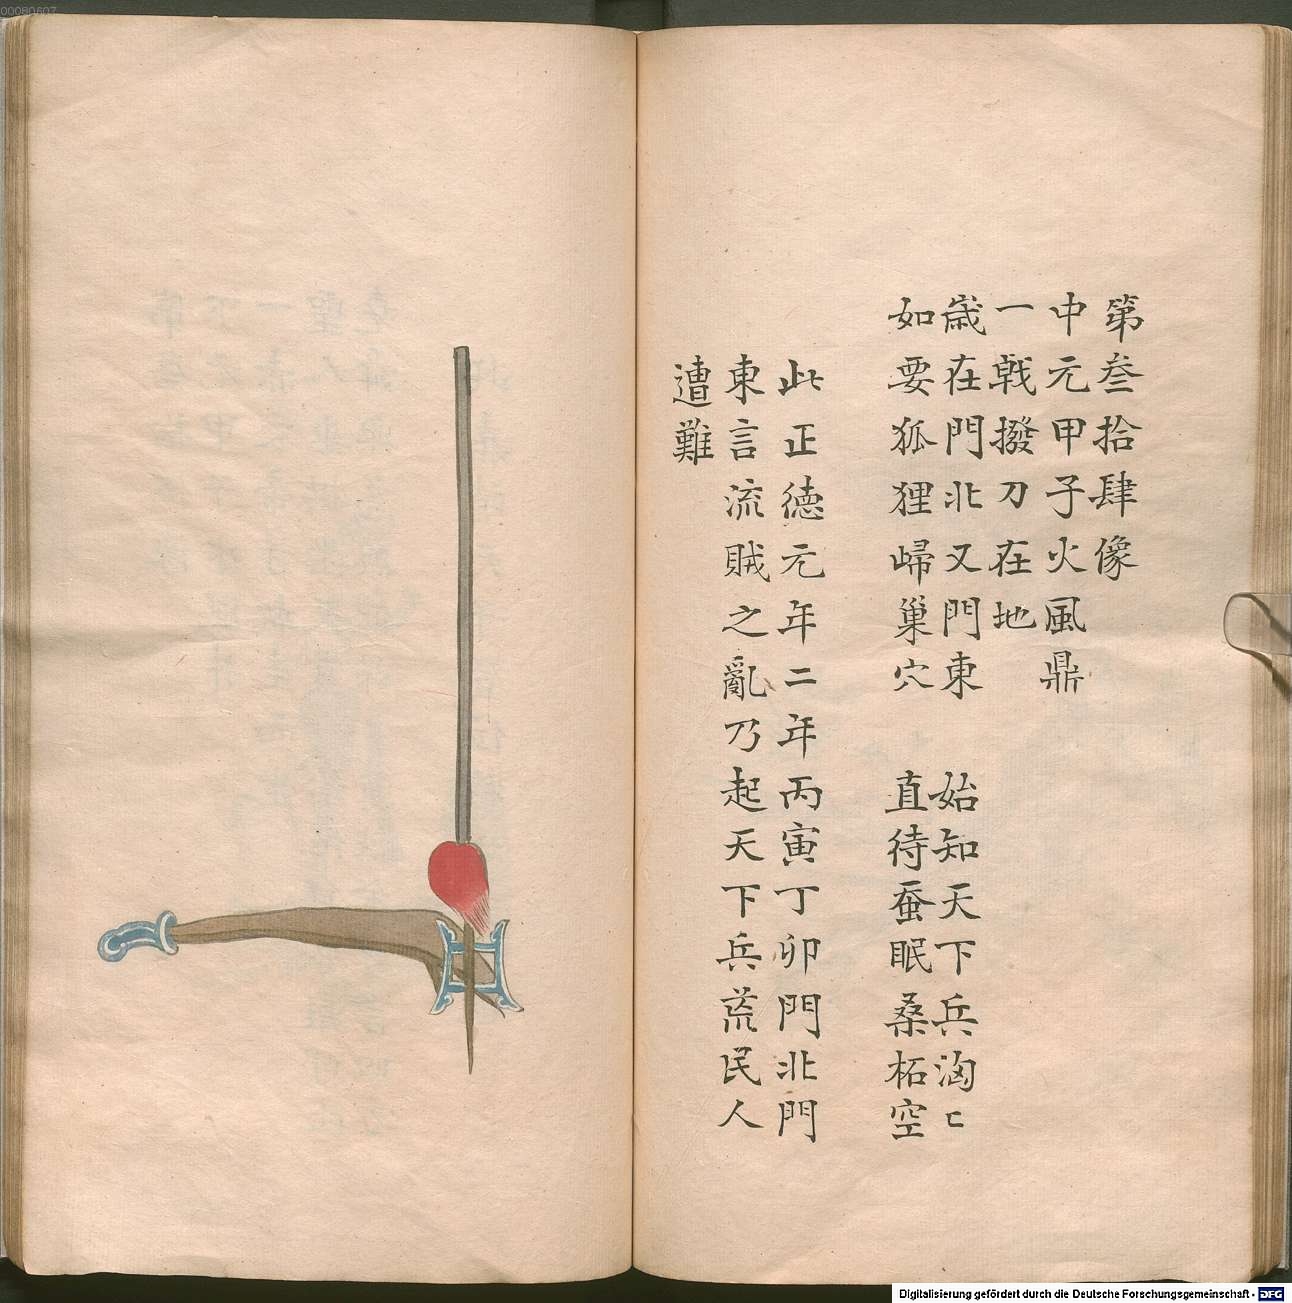 00080607
第叁拾肆像
中元甲子火風鼎
一戟撥刀在地
歲在門北又門東　始知天下兵洶ㄷ
如要狐狸歸巢穴　直待蚕眠桑柘空
此正德元年二年丙寅丁卯門北門
東言流賊之亂乃起天下兵荒民人
遭難
Digitalisierung gefördert durch die Deutsche Forschungsgemeinschaft - DFG